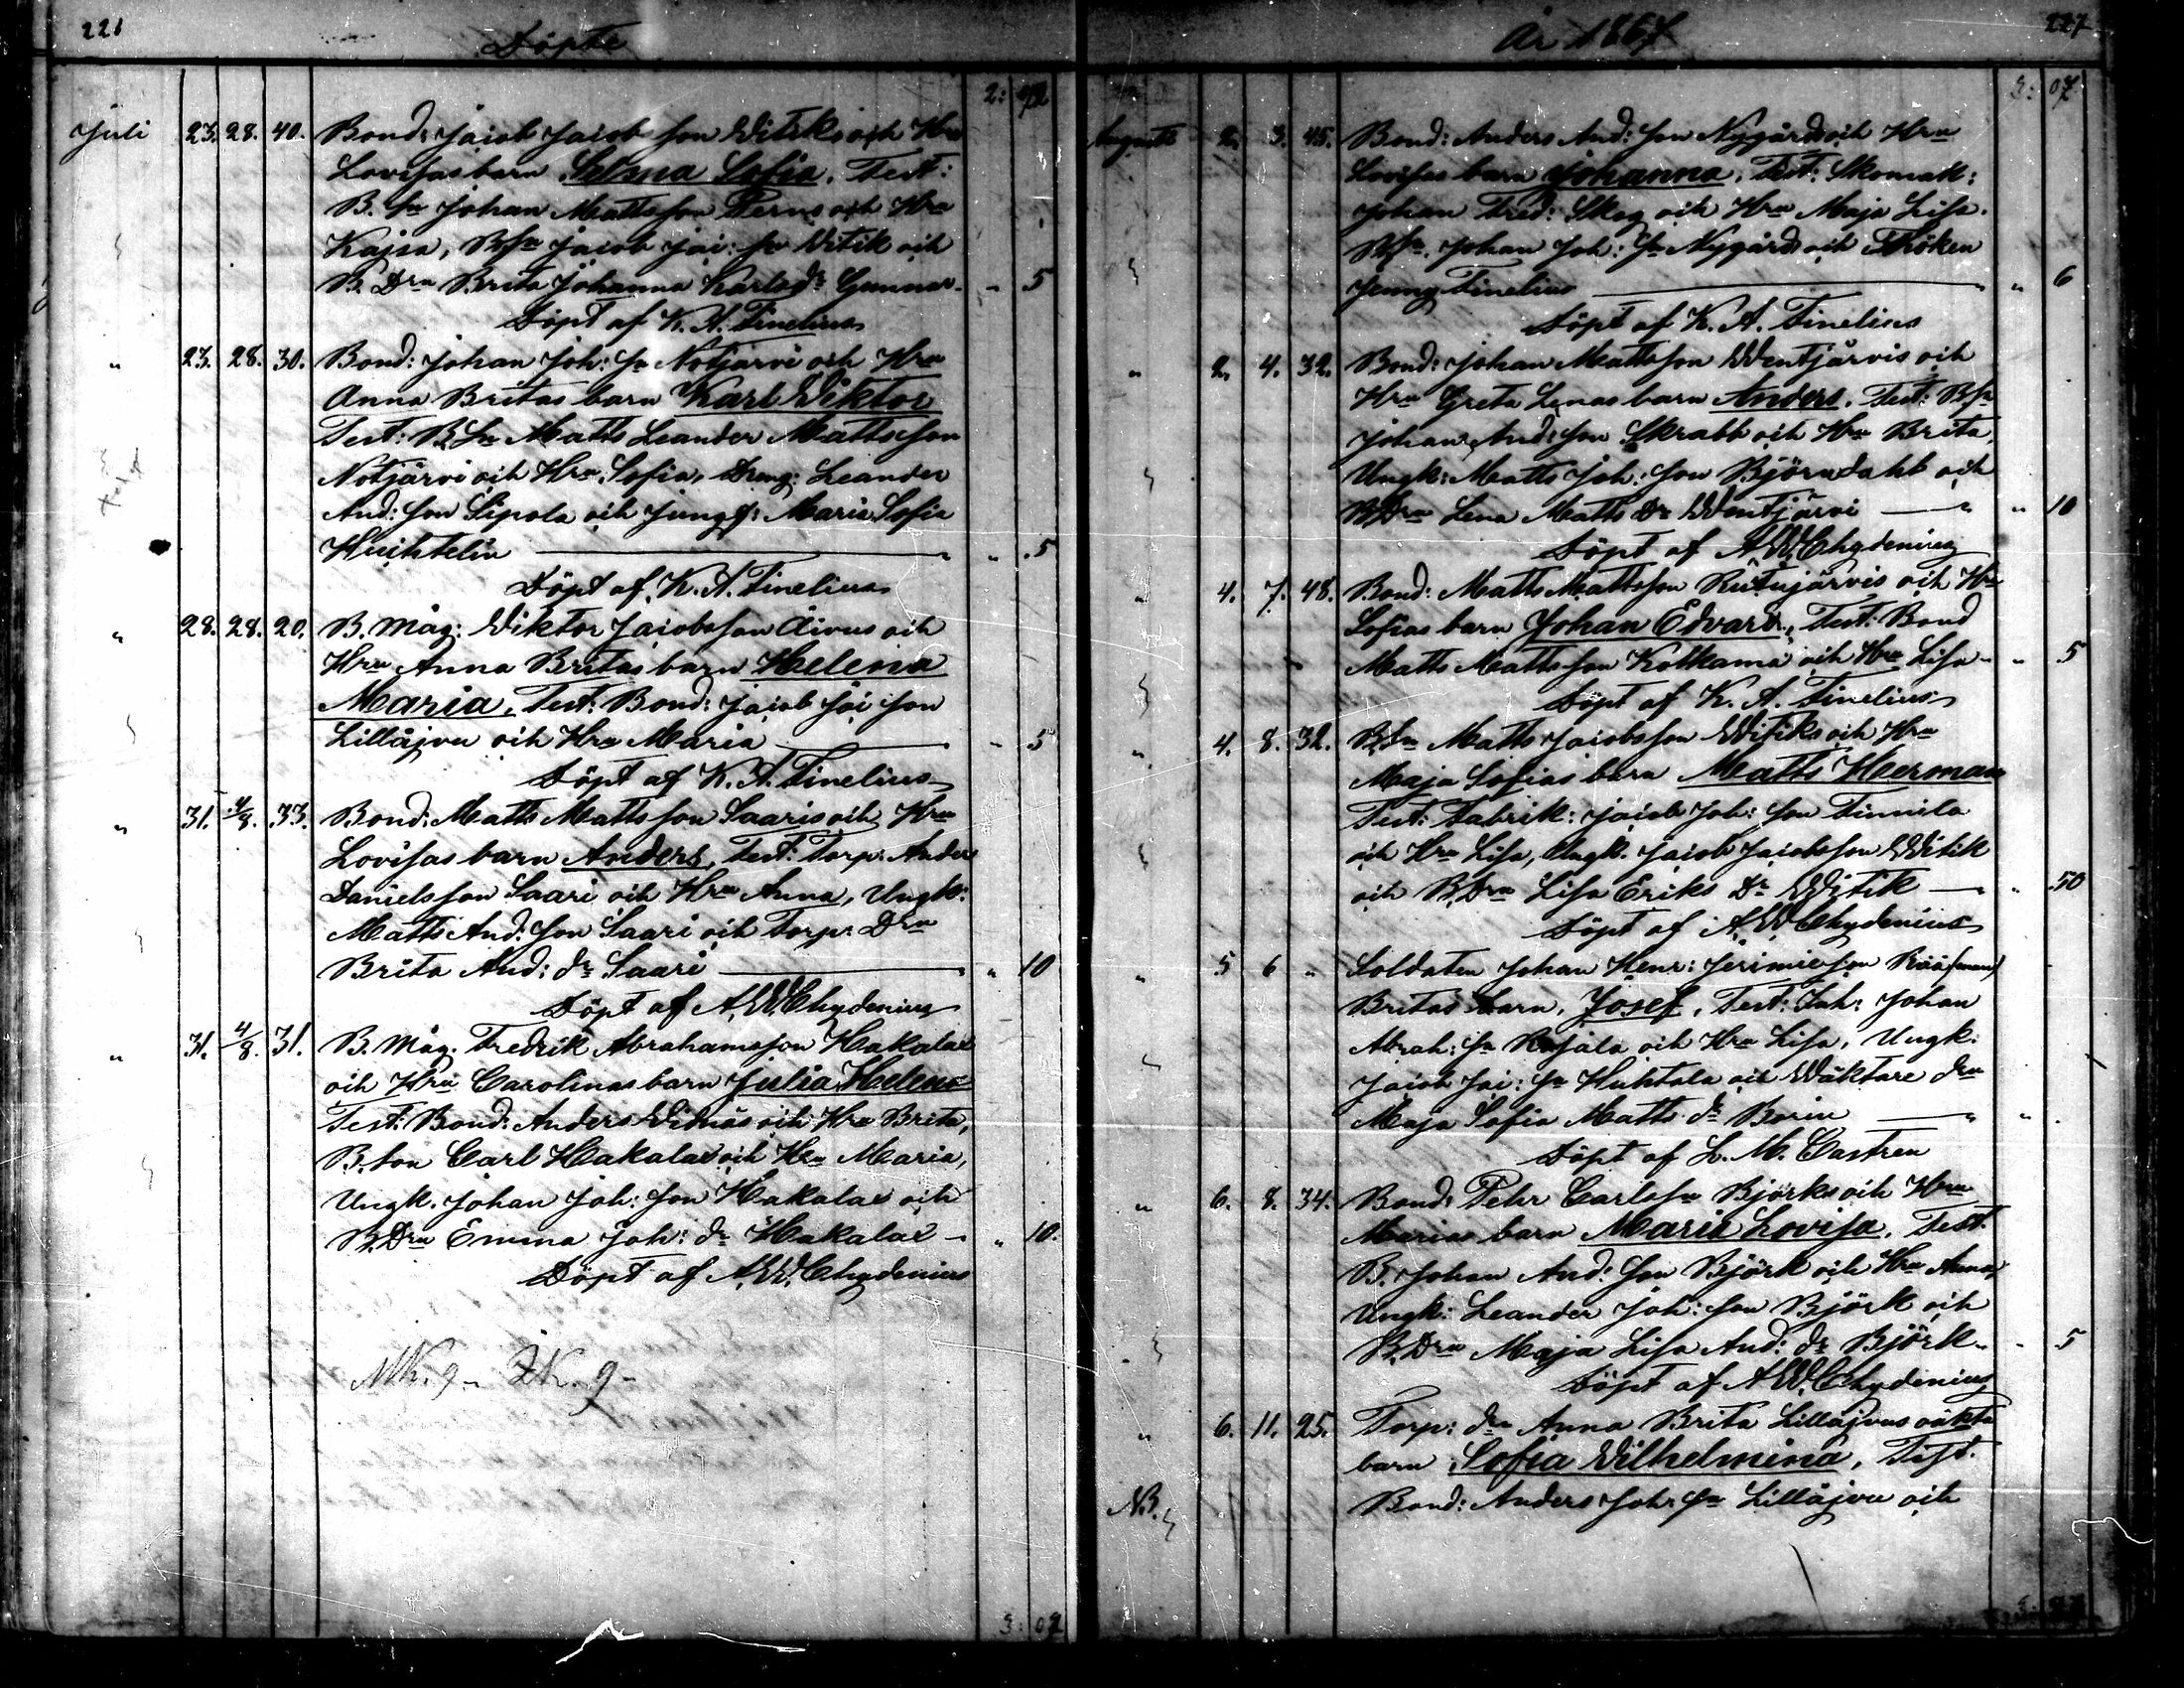 226
Döpte
2: 72
Juli 23. 28. 40. Bond: Jacob Jacobsson Witiks och Hu
Lovisas barn Selma Sofia. Test:
B. Sn Johan Mattsson Pernu och Hu
Kajsa, B.Sn Jacob Jac: Sn Witik och
B. Drn Brita Johanna Karlsdr Gunnar - " 5
Döpt af K. A. Finelius
" 23. 28. 30. Bond: Johan Joh: Sn Notjärvi och Hru
Anna Britas barn Karl Viktor
Test: B. Sn Matts Leander Mattsson
Notjärvi och Hru Sofia, Dreng: Leander
And: Son Sipola och Jungf: Maria Sofia
Huchtelin " " 5
Döpt af K. A. Finelius
" 28. 28. 20. B. måg: Viktor Jacobsson Aivus och
Hru Anna Britas barn Helena
Maria, Test: Bond: Jacob Jac son
Lillåjvu och Hru Maria " 5
Döpt af K. A. Finelius
" 31. 4/8. 33. Bond: Matts Mattsson Saaris och Hru
Lovisas barn Anders, Test: Torp: Anders
Danielsson Saari och Hru Anna, Ungk:
Matts And: Son Saari och Torp: Drn
Brita And: dr Saari " " 10
Döpt af A. W. Chydenius
" 31. 4/8. 31. B. Måg. Fredrik Abrahamsson Hakalax
och Hru Carolinas barn Julia Helena
Test: Bond: Anders Widnäs och Hru Brita,
B. Son Carl Hakalax och Hru Maria,
Ungk. Johan Joh: Son Hakalax och
B. Drn Emma Joh: dr Hakalax - " 10.
Döpt af A. W. Chydenius
Mk. 9- Qk. 9-
3: 07
År 1867
227
3: 07
Augusti 2. 3. 45. Bond: Anders And: Son Nygårds och Hru
Lovisas barn Johanna, Test: Skomak:
Johan Fred: Skog och Hru Maja Lisa.
B.Sn. Johan Joh: Sn Nygård och Fröken
Jenny Finelius " " 6
Döpt af K. A. Finelius
" 2. 4. 32. Bond: Johan Mattsson Wentjärvis och
Hru Greta Lenas barn Anders. Test: B.Sn
Johan And: Son Skrabb och Hru Brita,
Ungk: Matts Joh: Son Björndahl och
B. Drn Lena Matts Dr Wentjärvi " " 10
Döpt af A. W. Chydenius
" 4. 7. 48. Bond: Matts Mattsson Rutujärvis och Hru
Sofias barn Johan Edvard, Test: Bond
Matts Mattsson Kolkama och Hru Lisa - " 5
Döpt af K. A. Finelius
" 4. 8. 32. B. Sn Matts Jacobsson Witiks och Hru
Maja Sofias barn Matts Herman
Test: Fabrik: Jacob Joh: Son Finnila
och Hru Lisa, Ungk. Jacob Jacobsson Witik
och B. Drn Lisa Eriks Dr Witik " " 50
Döpt af A. W. Chydenius
" 5 6 " Soldaten Johan Henr:
Britas barn, Josef, Test: Inh: Johan
Abrah: Sn Rajala och Hru Lisa, Ungk:
Jacob Jac: Sn Huhtala och Wäktare drn
Maja Sofia Matts dr Borin " "
Döpt af L. M. Castren
" 6. 8. 34. Bond: Pehr Carlsson Björks och Hru
Marias barn Maria Lovisa, Test.
B. Johan And: Son Björk och Hru Anna,
Ungk: Leander Joh: Son Björk och
B. Drn Maja Lisa And: dr Björk - " 5
Döpt af A. W. Chydenius
" 6. 11. 25. Torp: drn Anna Brita Lillåjvus oäkta
barn Sofia Wilhelmina, Test.
NB. Bond: Anders Joh: Sn Lillåjvu och